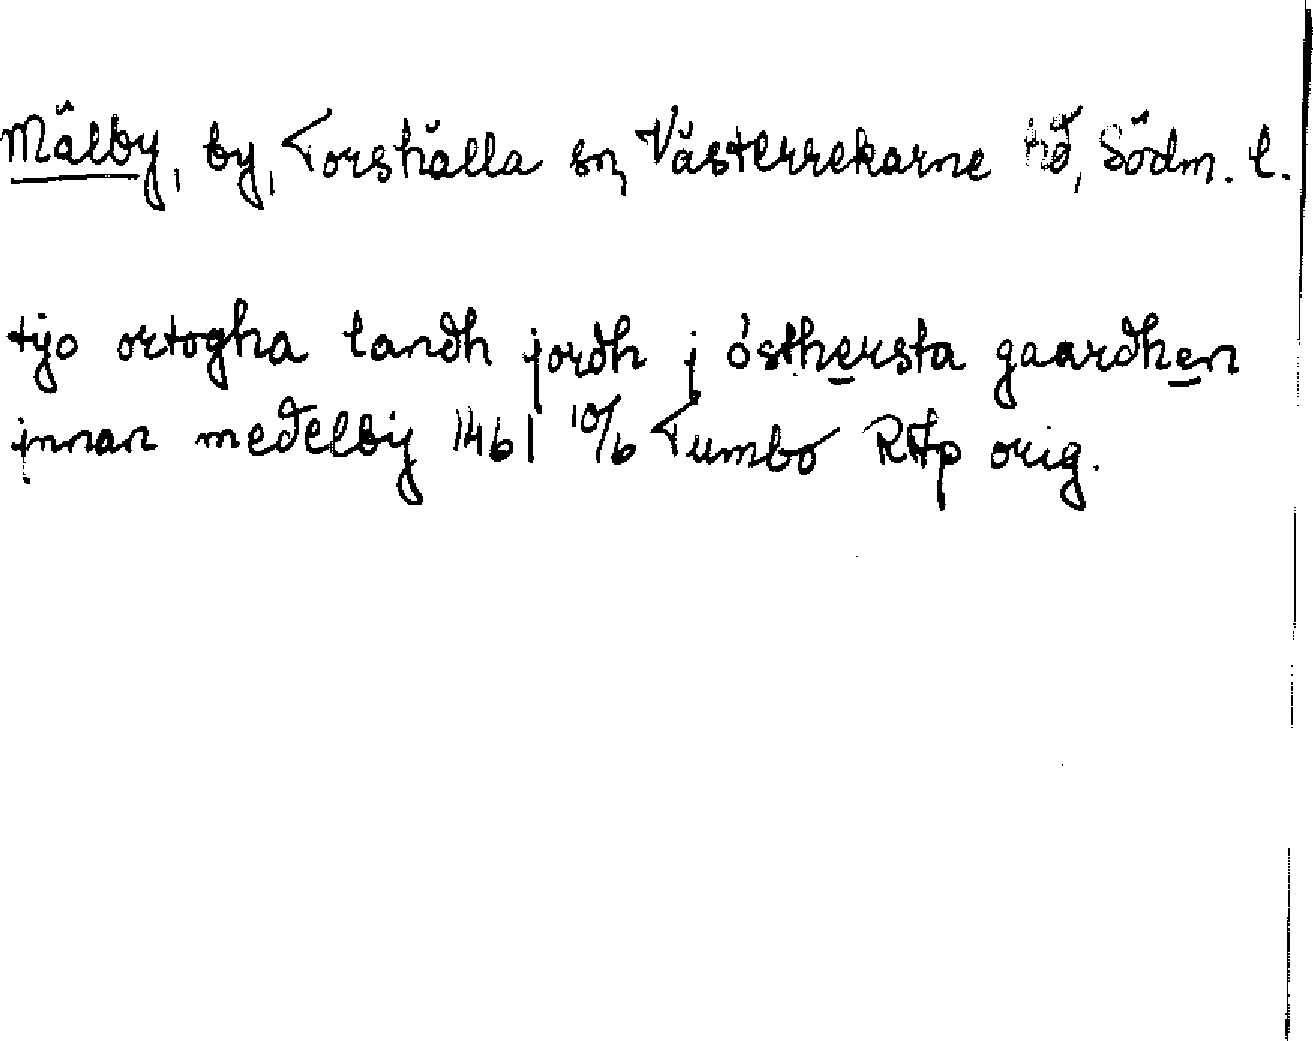 Mälby, by, Torshälla sn, Västerrekarne hd, Södm. l.
tÿo ortogha landh jordh j östhersta gaardhen
jnnan medelbÿ 1461 10/6 Tumbo RAp orig.